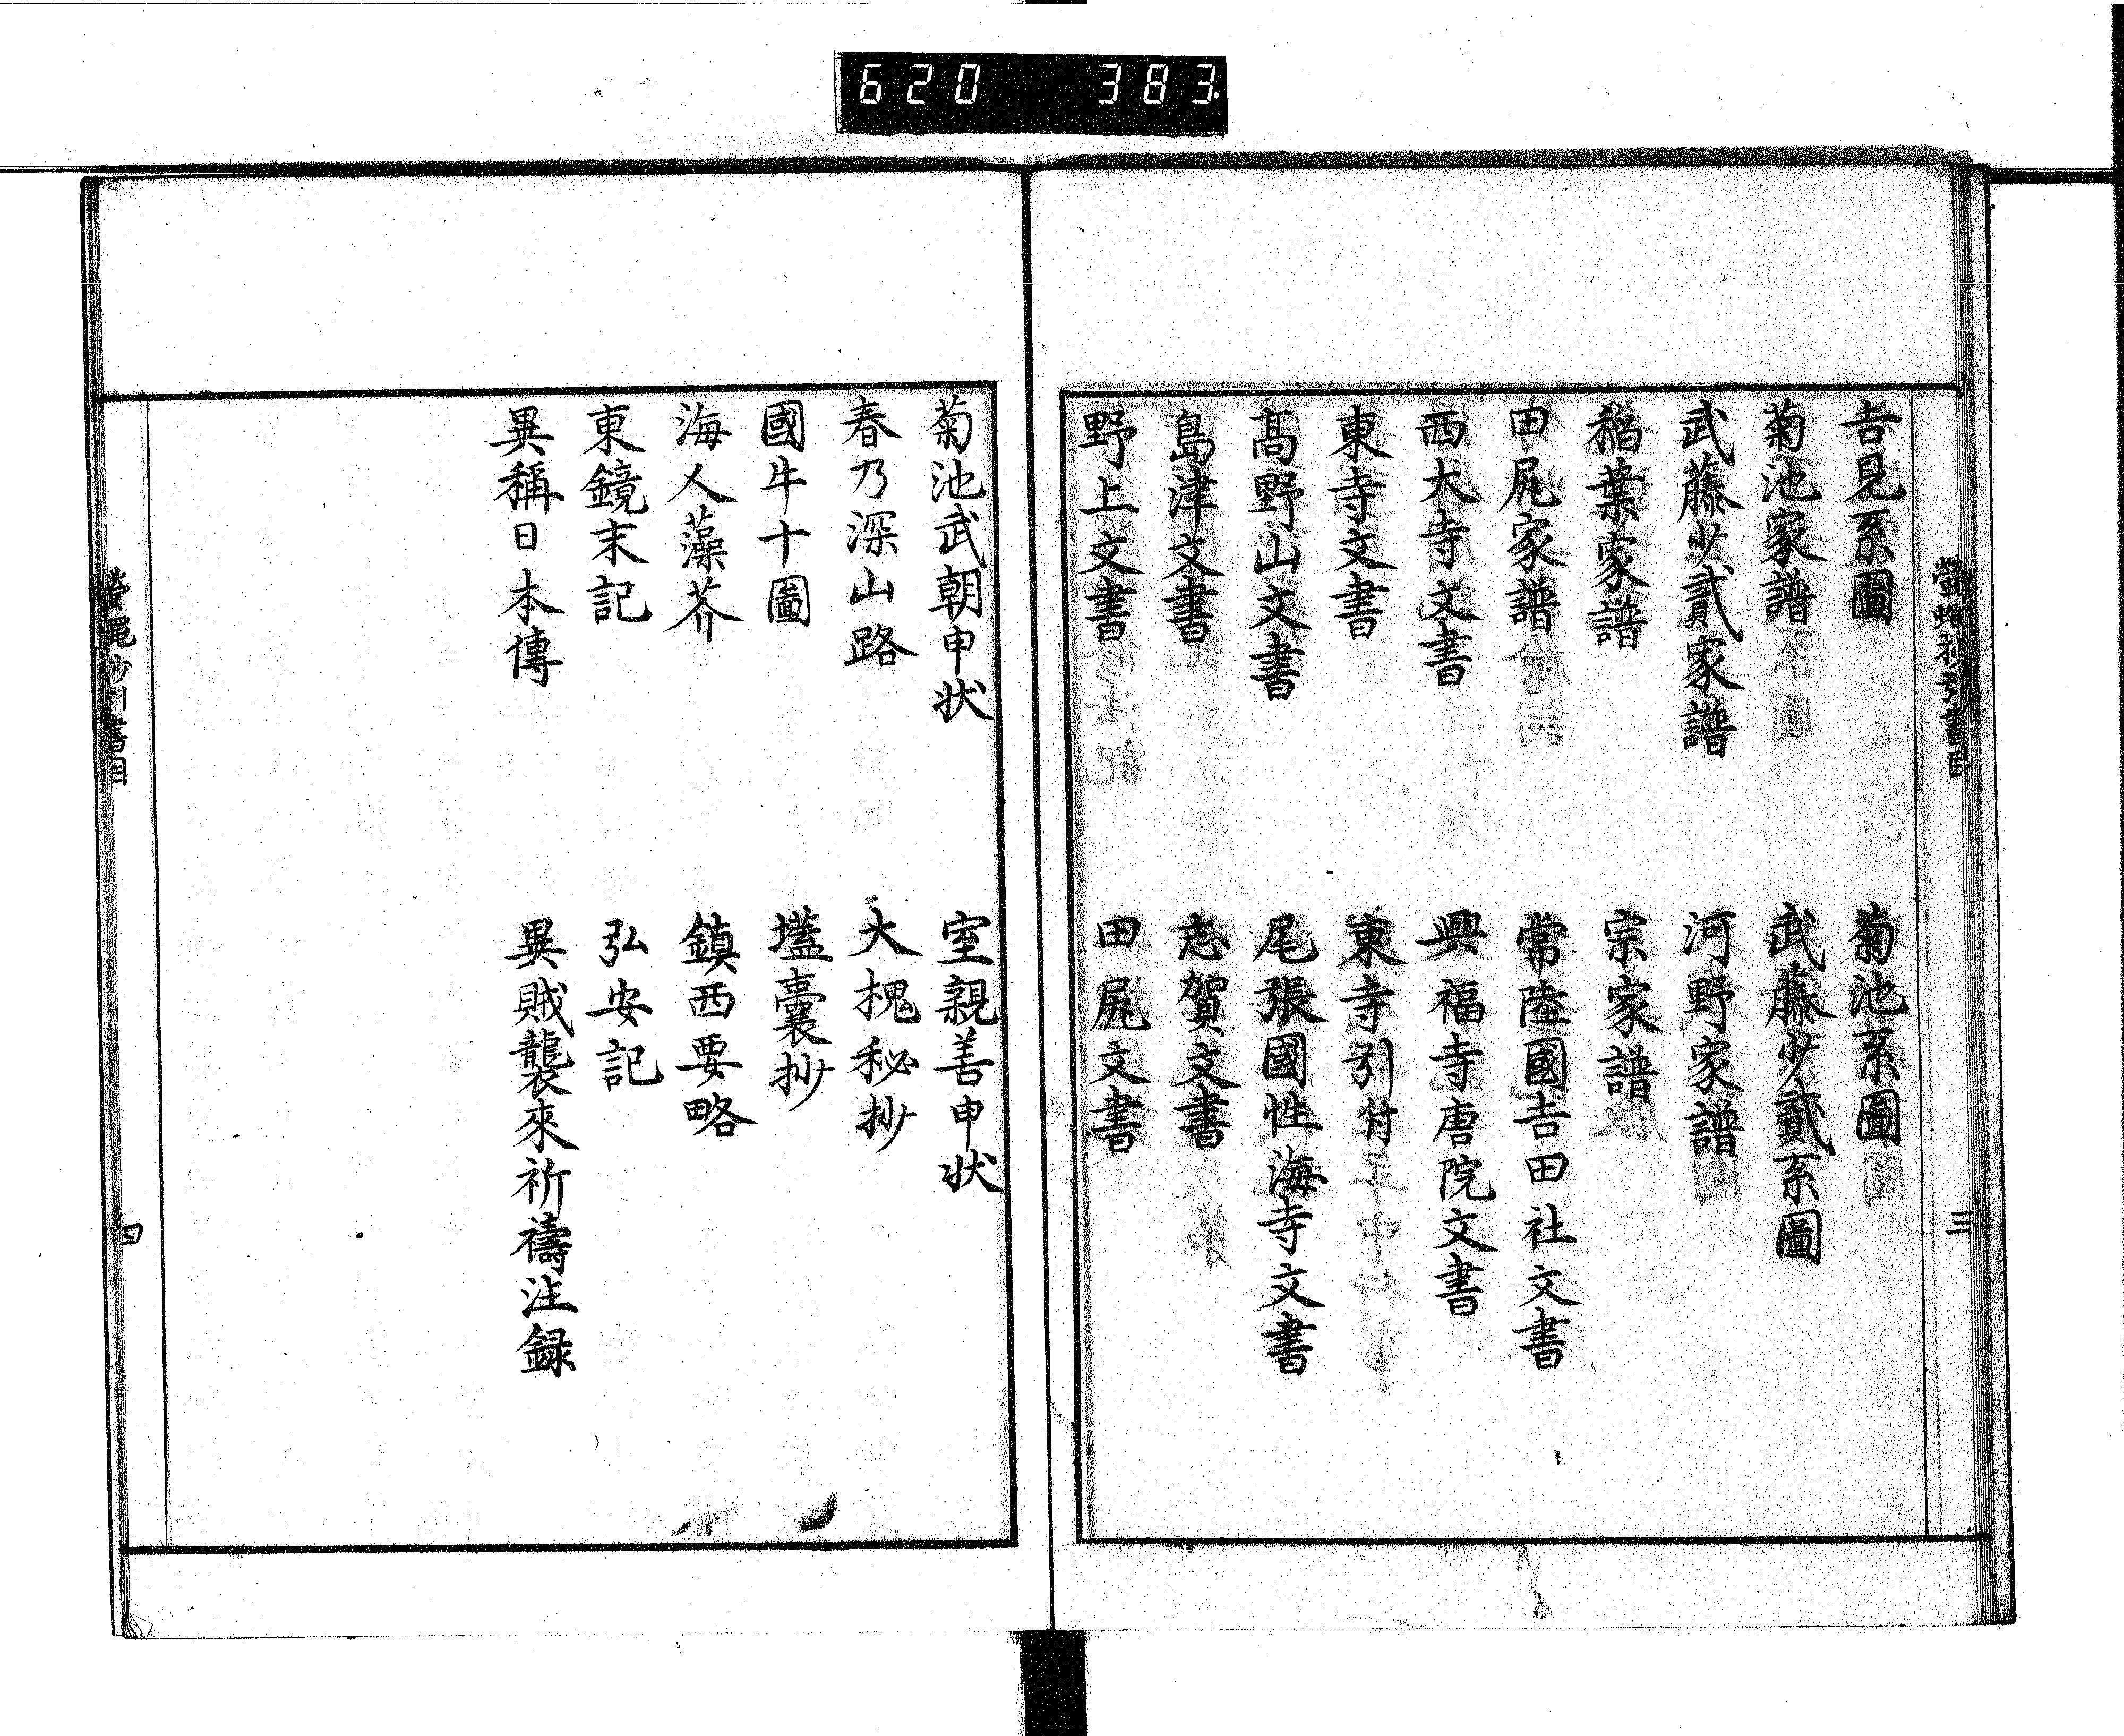 620 383
吉見系圖
菊池系圖
菊池家譜
武藤少貳系圖
武藤少貳家譜
河野家譜
稻葉家譜
宗家譜
田尻家譜
常陸國吉田社文書
西大寺文書
興福寺唐院文書
東寺文書
東寺引付
髙野山文書
尾張國性海寺文書
島津文書
志賀文書
野上文書
田尻文書
三
菊池武朝申状
室親善申状
春乃深山路
大槐秘抄
國牛十圖
壒囊抄
海人藻芥
鎮西要略
東鏡末記
弘安記
異稱日本傳
異賊襲來祈禱注録
四